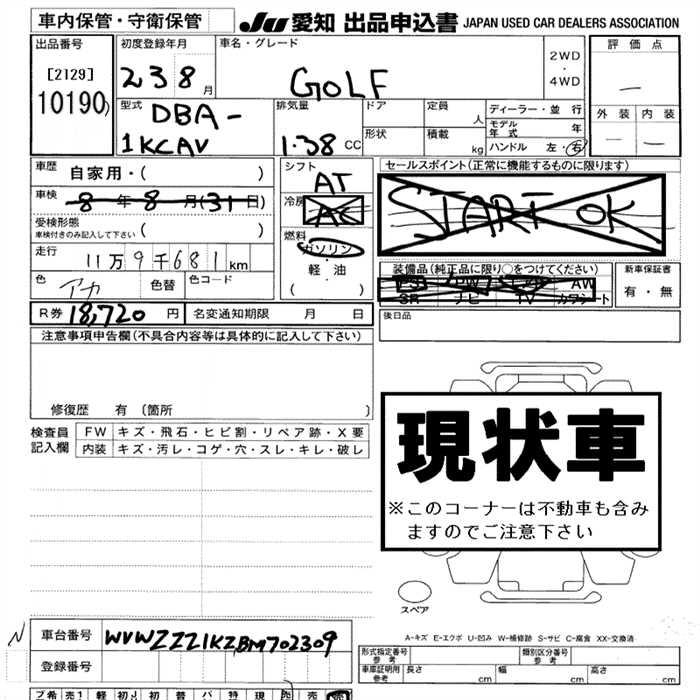 車内保管・守衛保管
JU 愛知 出品申込書 JAPAN USED CAR DEALERS ASSOCIATION
出品番号 初度登録年月 車名・グレード 評価点
[2129] 23 8月 GOLF 2WD・4WD —
10190
型式 排気量 ドア 定員 人 ディーラー・並行 外装 内装
DBA-1KCAV 1.38 CC 形状 積載 kg モデル年式 年 — —
ハンドル 左・右
車歴 自家用・( ) シフト AT セールスポイント(正常に機能するものに限ります)
車検 8年 8月(31日) 冷房 AC START OK
受検形態 ( )
車検付きのみ記入して下さい
走行 11万9千681km 燃料 ガソリン・軽油 ( )
装備品(純正品に限り○をつけてください) 新車保証書
PS PW AW 有・無
SR ナビ TV カワシート
色 アカ 色替 色コード
R券 18,720円 名変通知期限 月 日 後日品
注意事項申告欄(不具合内容等は具体的に記入して下さい)
修復歴 有 (箇所 )
検査員記入欄 FW キズ・飛石・ヒビ割・リペア跡・X要
内装 キズ・汚レ・コゲ・穴・スレ・キレ・破レ
現状車
※このコーナーは不動車も含み
ますのでご注意下さい
スペア
A-キズ E-エクボ U-凹み W-補修跡 S-サビ C-腐食 XX-交換済
N 車台番号 WVWZZZ1KZBM702309
登録番号
形式指定番号 参考 類別区分番号 参考
車庫証明用 参考 長さ cm 幅 cm 高さ cm